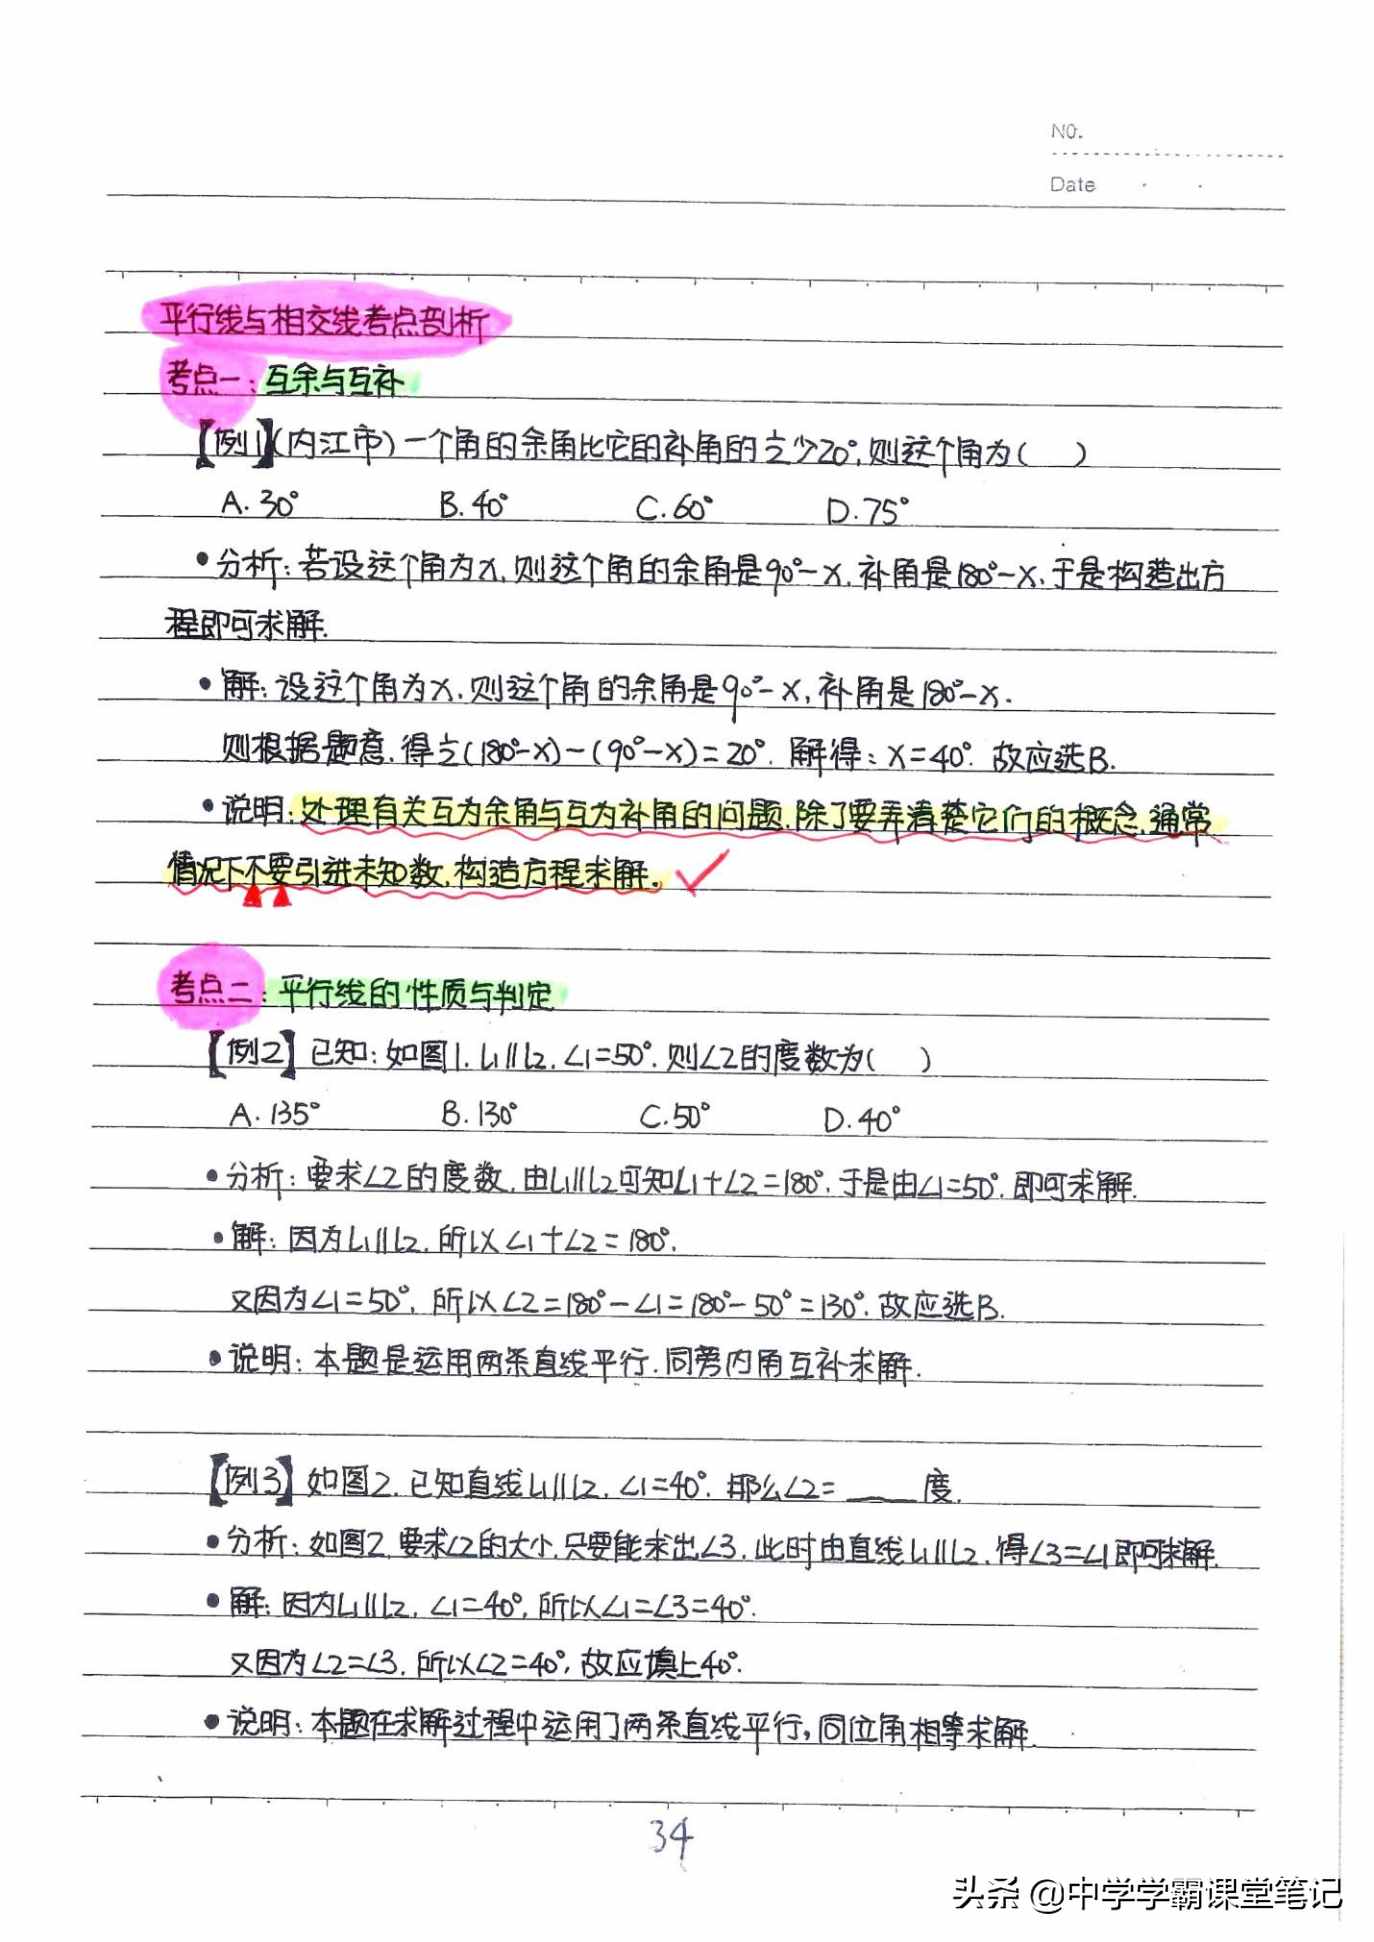 NO.
Date
平行线与相交线考点剖析
考点一:互余与互补
【例1】(内江市)一个角的余角比它的补角的½少20°,则这个角为( )
A.30° B.40° C.60° D.75°
•分析:若设这个角为x,则这个角的余角是90°-x,补角是180°-x,于是构造出方
程即可求解.
•解:设这个角为x,则这个角的余角是90°-x,补角是180°-x.
则根据题意,得½(180°-x)-(90°-x)=20°.解得:x=40°.故应选B.
•说明:处理有关互为余角与互为补角的问题,除了要弄清楚它们的概念,通常
情况下不要引进未知数,构造方程求解。
考点二:平行线的性质与判定
【例2】已知:如图1,L1∥L2,∠1=50°,则∠2的度数为( )
A.135° B.130° C.50° D.40°
•分析:要求∠2的度数,由L1∥L2可知∠1+∠2=180°,于是由∠1=50°,即可求解.
•解:因为L1∥L2,所以∠1+∠2=180°.
又因为∠1=50°,所以∠2=180°-∠1=180°-50°=130°.故应选B.
•说明:本题是运用两条直线平行,同旁内角互补求解.
【例3】如图2,已知直线L1∥L2,∠1=40°,那么∠2=____度.
•分析:如图2,要求∠2的大小,只要能求出∠3,此时由直线L1∥L2,得∠3=∠1即可求解.
•解:因为L1∥L2,∠1=40°,所以∠1=∠3=40°.
又因为∠2=∠3,所以∠2=40°,故应填上40°.
•说明:本题在求解过程中运用了两条直线平行,同位角相等求解.
34
头条 @中学学霸课堂笔记